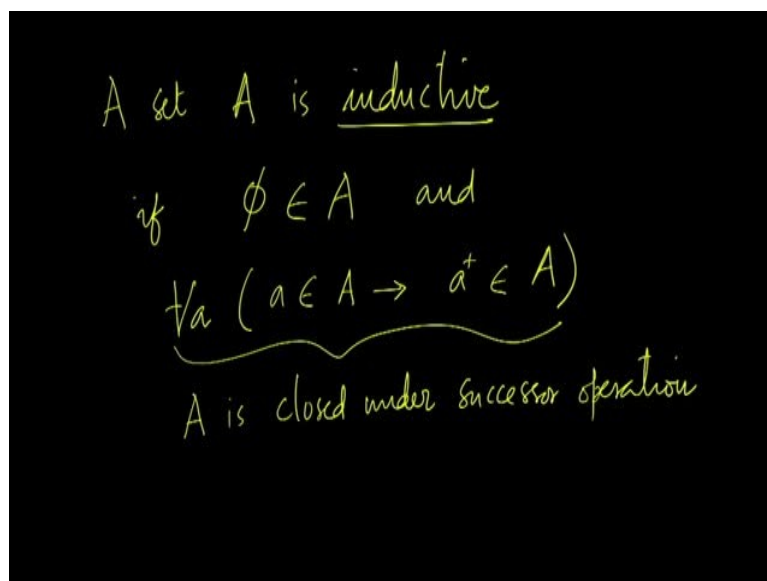 A set A is inductive
if ϕ ∈ A and
∀a ( a ∈ A → a⁺ ∈ A )
A is closed under successor operation